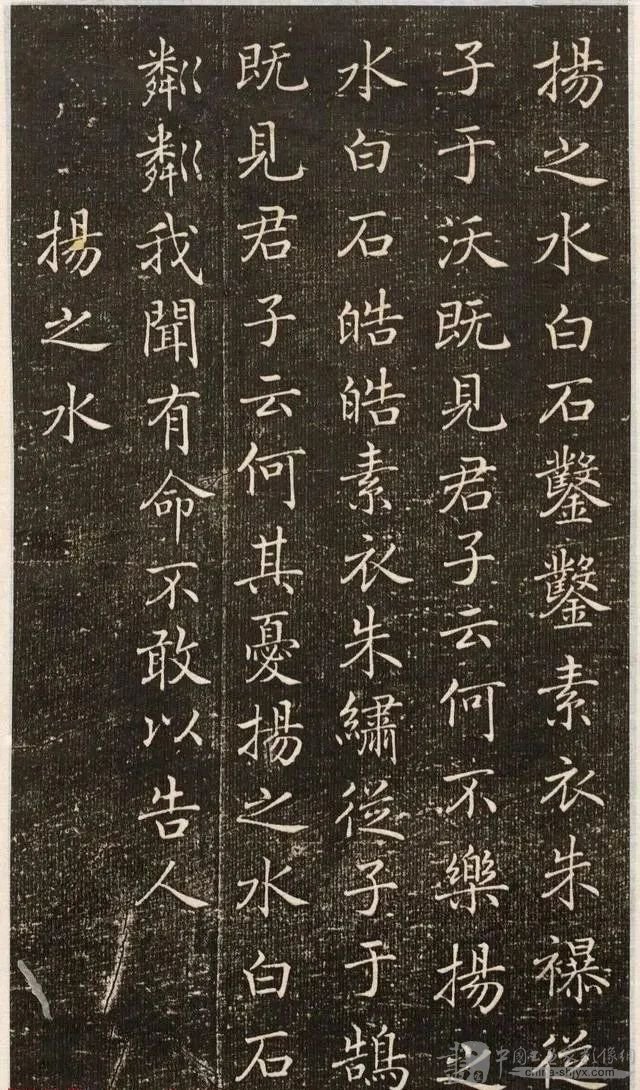 揚之水白石鑿鑿素衣朱襮從
子于沃既見君子云何不樂揚之
水白石皓皓素衣朱繡從子于鵠
既見君子云何其憂揚之水白石
粼粼我聞有命不敢以告人
揚之水
china-shjyx.com